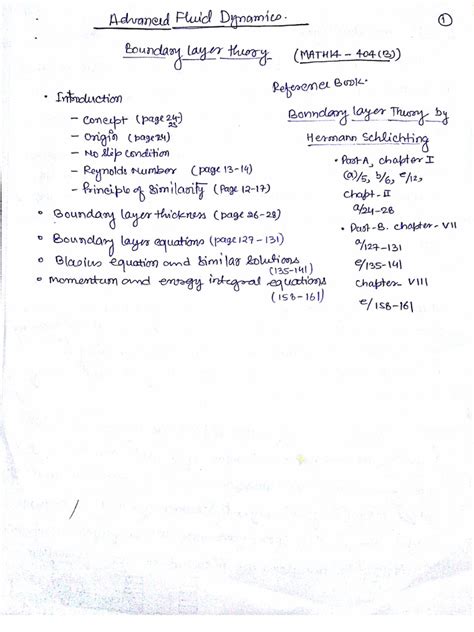 Advanced Fluid Dynamics.
①
Boundary layer theory (MATH14 - 404(B))
Reference Book.
• Introduction
- Concept (page 24)
25
- Origin (page 24)
- No slip condition
- Reynolds Number (page 13-14)
- Principle of Similarity (Page 12-17)
• Boundary layer thickness (page 26-28)
• Boundary layer equations (page 127-131)
• Blasius equation and Similar Solutions
(135-141)
• momentum and energy integral equations
(158-161)
Boundary layer Theory by
Hermann Schlichting
• Part A, chapter I
(a)/5, b/6, e/12,
Chapt-II
a/24-28
• Part-B. chapter-VII
a/127-131
e/135-141
chapter VIII
e/158-161